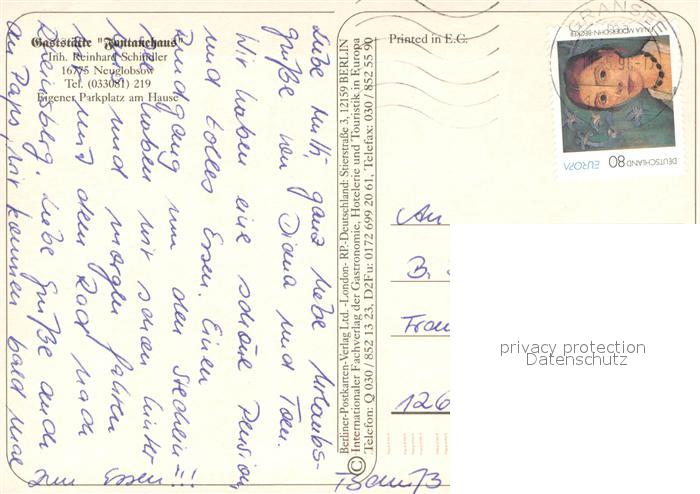 Gaststätte "Fontanehaus"
Inh. Reinhard Schindler
16775 Neuglobsow
Tel. (033081) 219
Eigener Parkplatz am Hause
Liebe Mutti, ganz liebe Urlaubs-
grüße von Diana und Tom.
Wir haben eine schöne Pension,
und tolles Essen. Einen
Rundgang um den Stechlin!!!
haben wir schon hinter
uns und morgen fahren
wir mit dem Rad nach
Rheinsberg. Liebe Grüße auch
an Paps, wir kommen bald mal
zum Essen
Berliner-Postkarten-Verlag Ltd. -London- RP.-Deutschland: Stierstraße 3, 12159 BERLIN
© Internationaler Fachverlag der Gastronomie, Hotelerie und Touristik in Europa
Telefon: Q 030 / 852 13 23, D2Fu: 0172 699 20 61, Telefax: 030 / 852 55 90
Printed in E.C.
GRANSEE
PAULA MODERSOHN-BECKER
DEUTSCHLAND 80
EUROPA
An
B.
Frau
126
privacy protection
Datenschutz